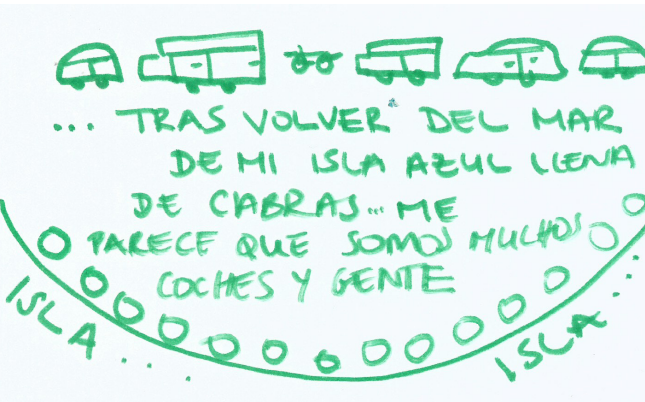 ... TRAS VOLVER DEL MAR
DE MI ISLA AZUL LLENA
DE CABRAS... ME
PARECE QUE SOMOS MUCHOS
COCHES Y GENTE
ISLA....
ISLA....